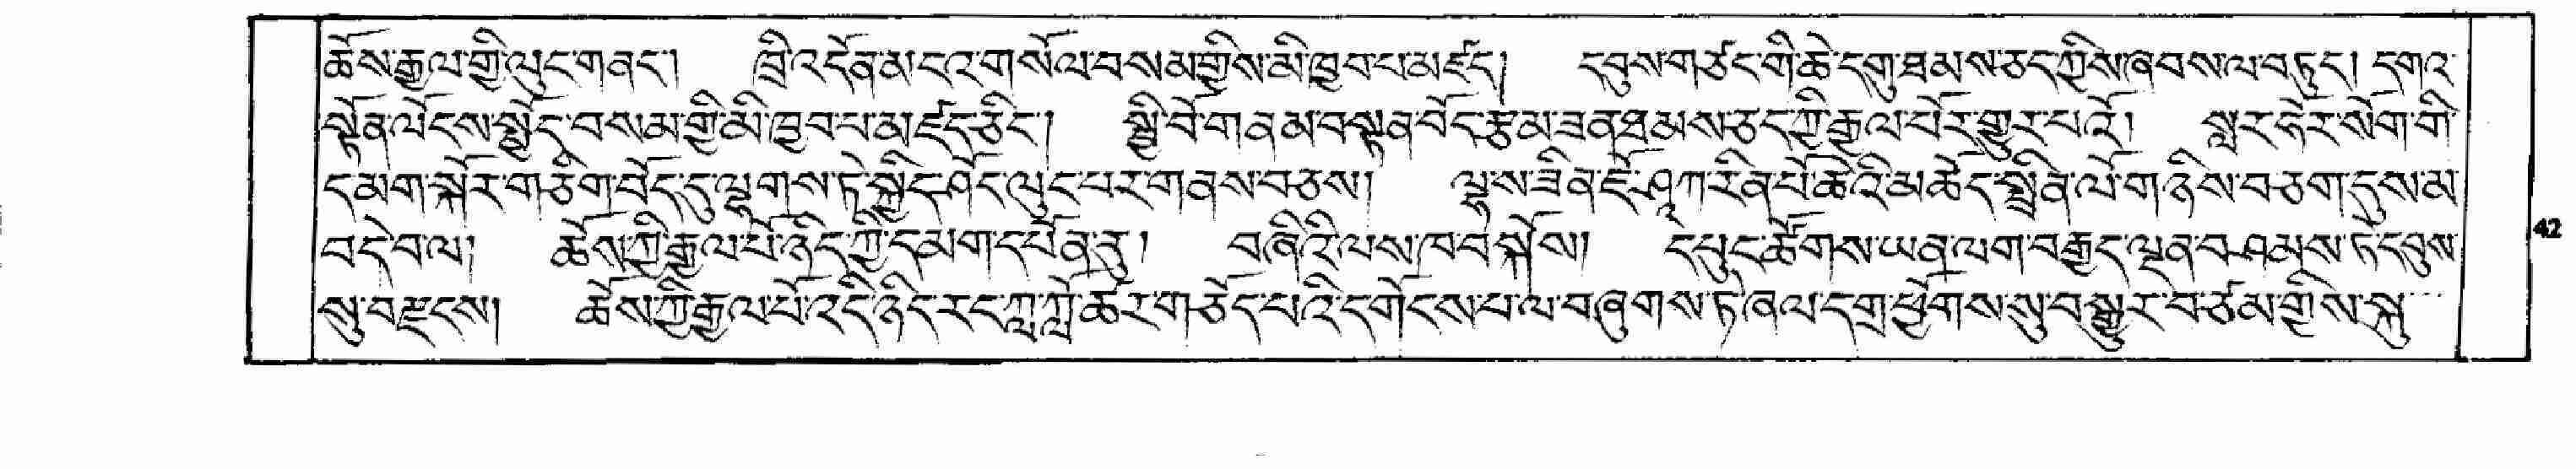 ཆོས་རྒྱལ་གྱི་ལུང་གནད། ཁྲི་འདོན་མངའ་གསོལ་བསམ་གྱིས་མི་ཁྱབ་པ་མཛད། དབུས་གཙང་གི་ཆེ་དགུ་ཐམས་ཅད་ཀྱིས་ཞབས་ལ་བཏུད། དགའ་
སྟོན་ལོངས་སྤྱོད་བསམ་གྱི་མི་ཁྱབ་པ་མཛད་ཅིང་། སྤྱི་བོ་གནམ་བསྟན་བོད་རྩམ་ཟན་ཐམས་ཅད་ཀྱི་རྒྱལ་པོར་གྱུར་པའོ། སླར་ཧོར་སོག་གི་
དམག་སྐོར་གཅིག་བོད་དུ་ལྷགས་ཏེ་སྐྱིད་ཤོད་ལུང་པར་གནས་བཅས། ལྷ་ས་ཟིན་ཇོ་ཤཱཀ་རིན་པོ་ཆེའི་མཆོད་སྤྲིན་ལོ་གཉིས་བཅག་དུས་མ་
བདེ་བལ། ཆོས་ཀྱི་རྒྱལ་པོ་ཉིད་ཀྱི་དམག་དཔོན་ནུ། བཞིའི་ལས་ཁབ་སྐོས། དེ་དཔུང་ཚོགས་ཡན་ལག་བརྒྱད་ལྡན་བཤམས་ཏེ་དབུས་
སུ་བརྫངས། ཆོས་ཀྱི་རྒྱལ་པོ་འདི་ཉིད་རང་ཀླ་ཀློ་ཚར་གཅོད་པའི་དགོངས་པ་ལ་བཞུགས་ཏེ་ཞལ་དགྲ་ཕྱོགས་སུ་བསྒྱུར་བ་ཙམ་གྱིས་སྐུ་
42